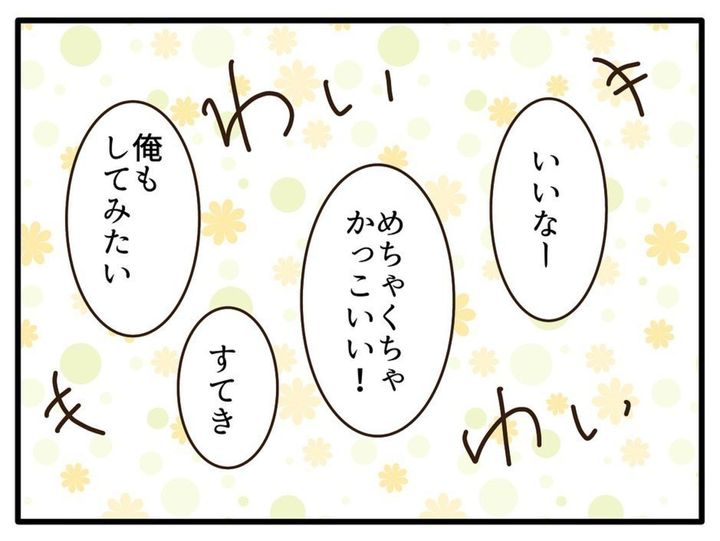 いいなー
めちゃくちゃ
かっこいい!
俺も
してみたい
すてき
わい
き
わい
き